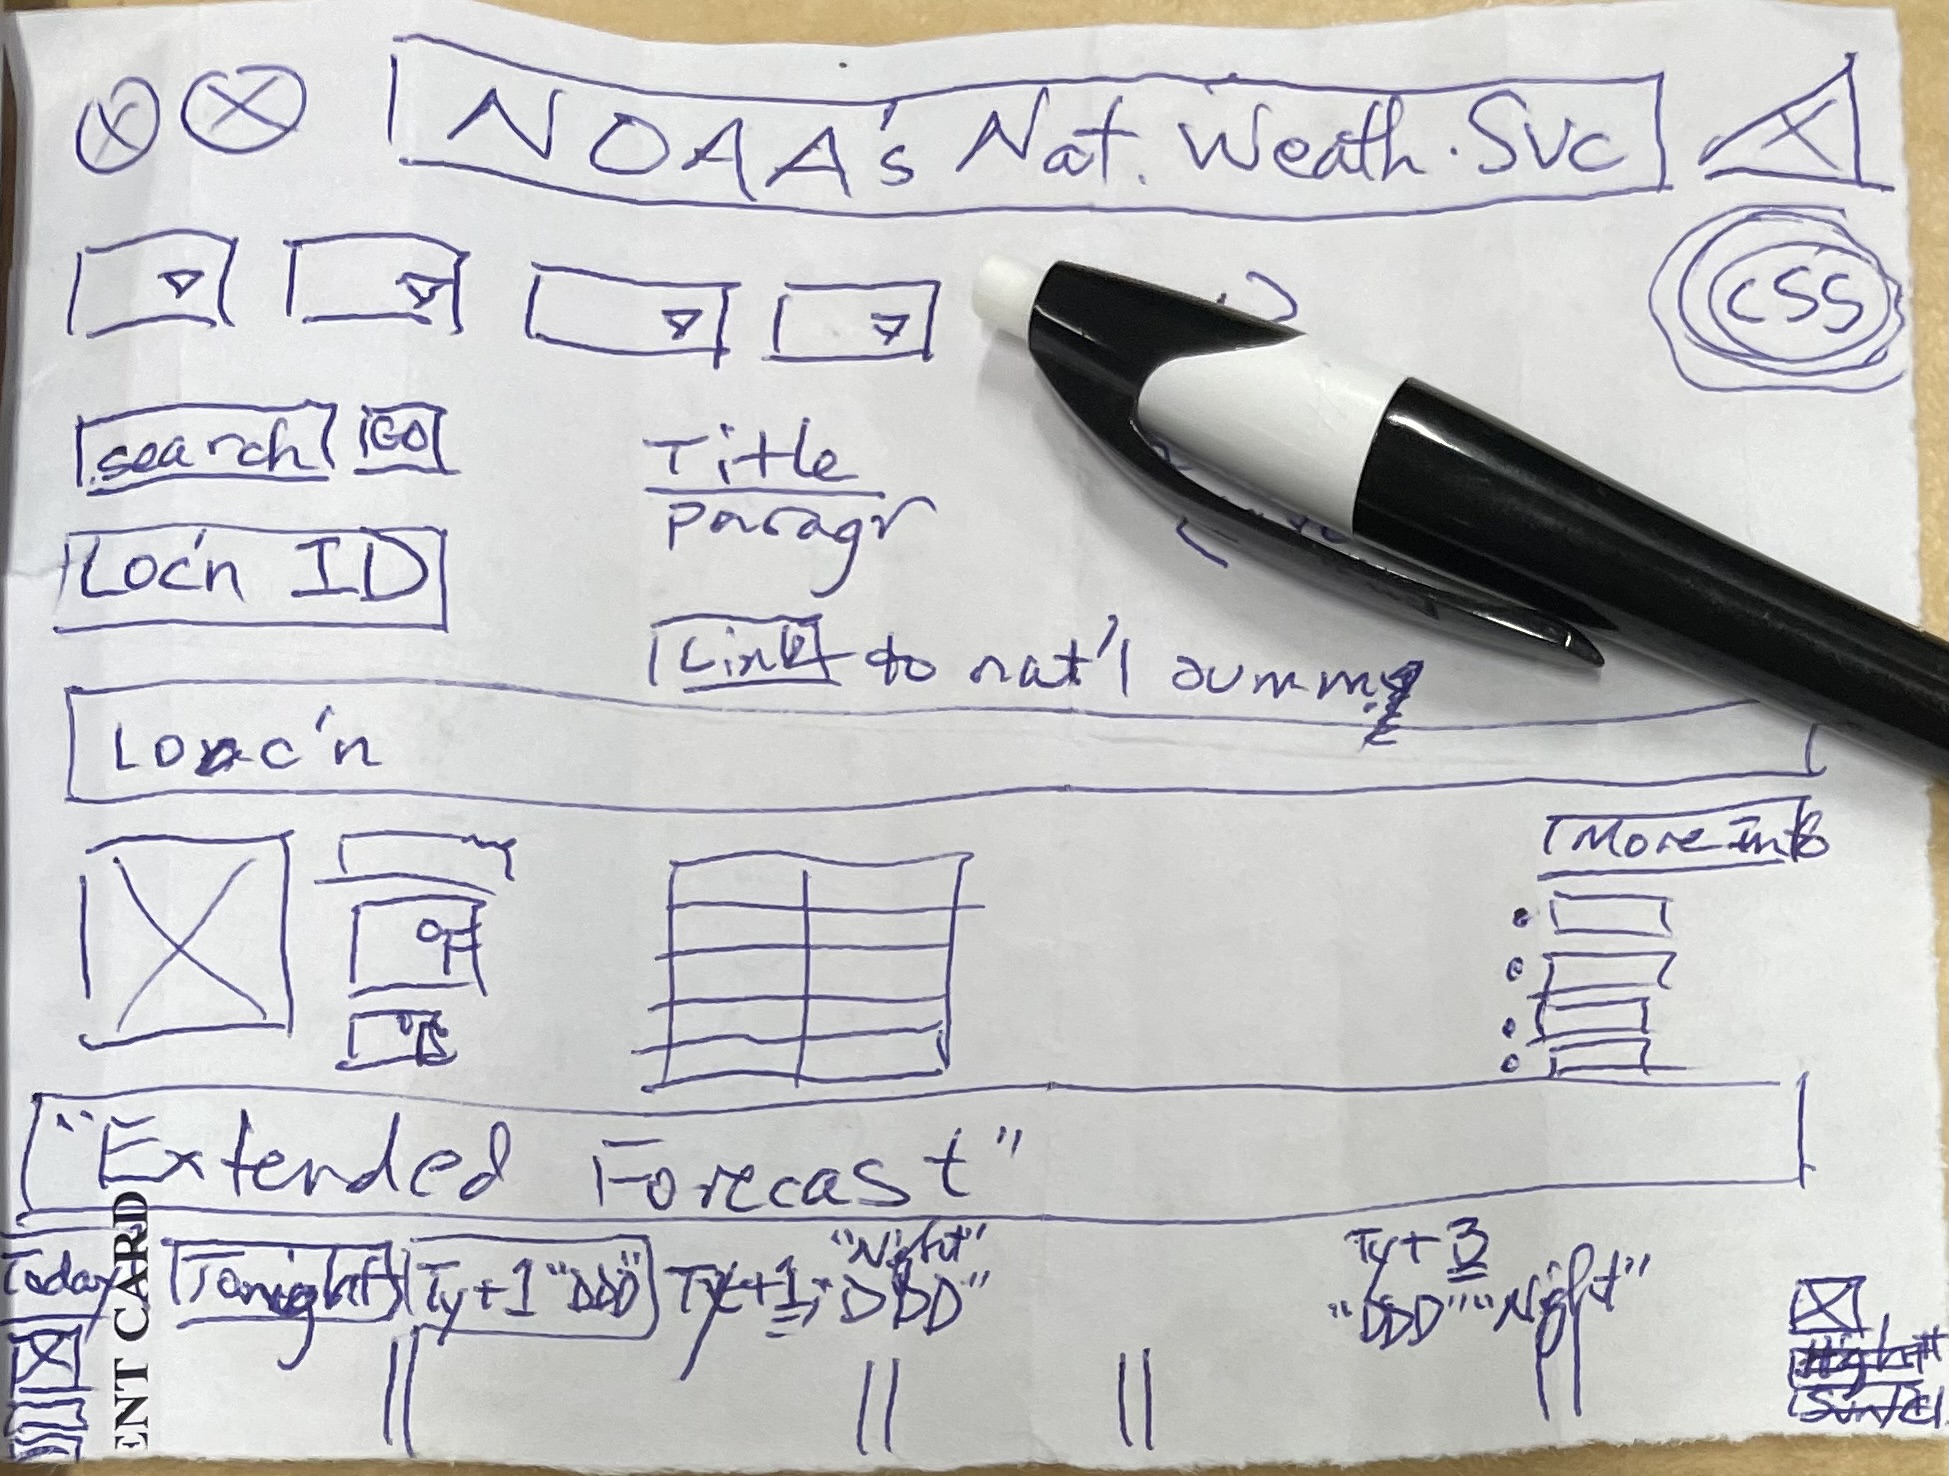 NOAA's Nat. Weath. Svc
CSS
search GO
Title
Paragr
Loc'n ID
Link to nat'l summy
Loc'n
More Info
°F
°C
"Extended Forecast"
Today
Tonight
Ty+1 "DDD"
Ty+1, "DDD" "Night"
Ty+3
"DDD" "Night"
ENT CARD